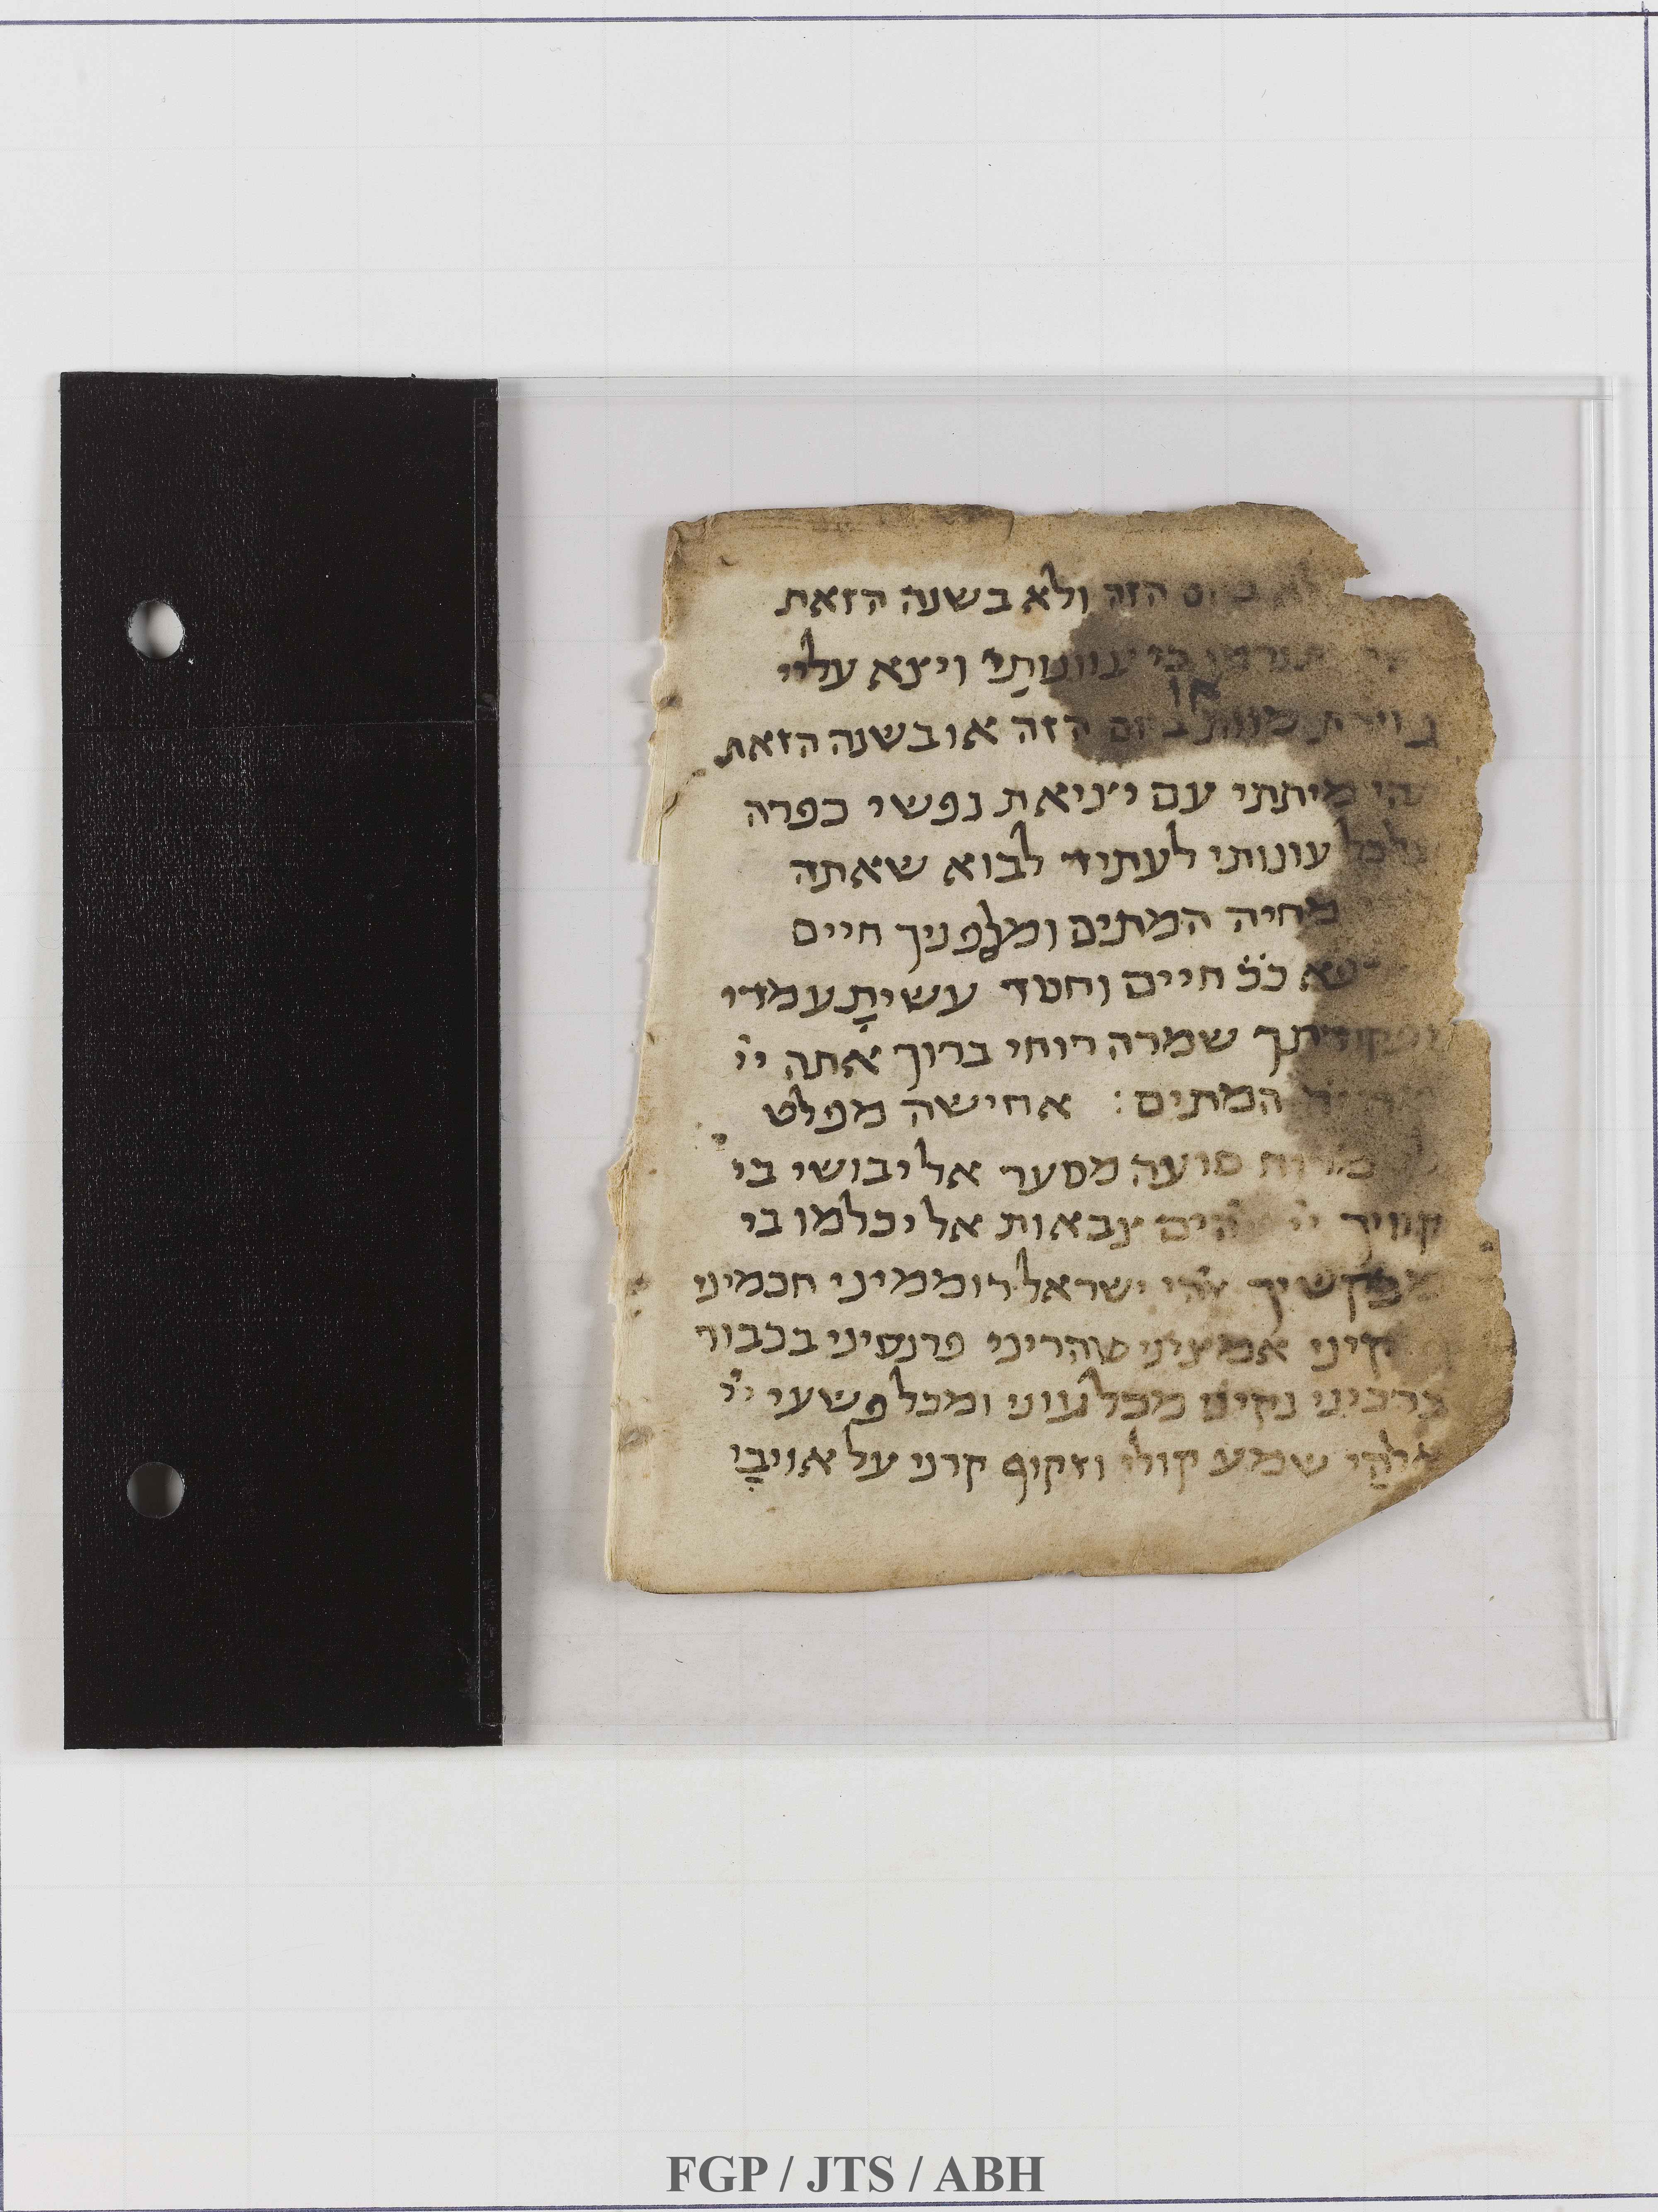 לא ביום הזה ולא בשנה הזאת
עוונותי ויצא עליי
או
גזירת מוות ביום הזה או בשנה הזאת
תהי מיתתי עם יציאת נפשי כפרה
לכל עונותי לעתיד לבוא שאתה
מחיה המתים ומלפניך חיים
כל חיים וחסד עשית עמדי
ופקודתך שמרה רוחי ברוך אתה ייי
המתים : אחישה מפלט
לי מרוח סועה מסער אל יבושי בי
קוויך צבאות אל יכלמו בי
מבקשיך ישראל רוממיני חכמיני
אמציני טהריני פרנסיני בכבוד
ברכיני נקיני מכל עוני ומכל פשעי ייי
אלהי שמע קולי וזקוף קרני על אויבי
FGP / JTS / ABH